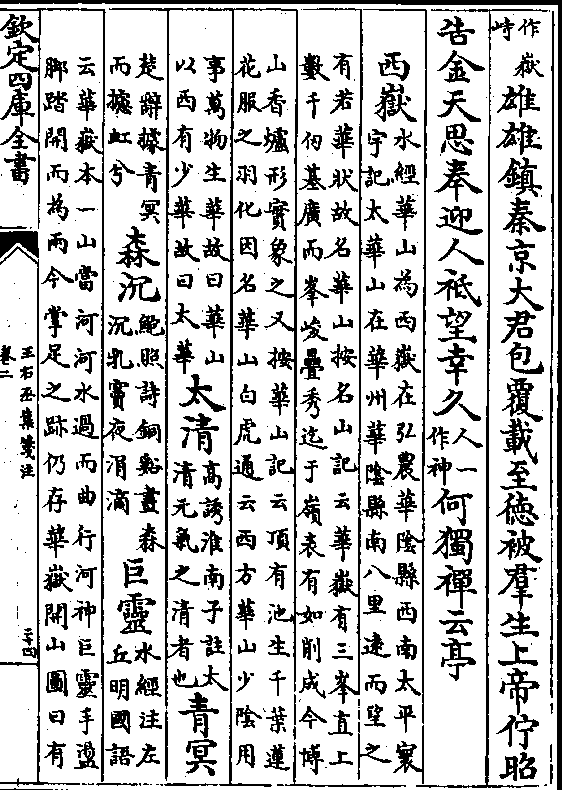 作嶽
峙
雄雄鎮秦京大君包覆載至徳被羣生上帝佇昭
告金天思奉迎人祗望幸久
人一
作神
何獨禪云亭
西嶽
水經華山為西嶽在弘農華陰縣西南太平寰
宇記太華山在華州華陰縣南八里逺而望之
有若華狀故名華山按名山記云華嶽有三峯直上
數千仞基廣而峯峻疊秀迄于嶺表有如削成今博
山香爐形實象之又按華山記云頂有池生千葉蓮
花服之羽化因名華山白虎通云西方華山少陰用
事萬物生華故曰華山
以西有少華故曰太華
太清
高誘淮南子註太
清元氣之清者也
青冥
楚辭據青冥
而攄虹兮
森沉
鮑照詩銅谿晝森
沉乳竇夜涓滴
巨靈
水經注左
丘明國語
云華嶽本一山當河河水過而曲行河神巨靈手盪
脚踏開而為兩今掌足之跡仍存華嶽開山圖曰有
欽定四庫全書
王右丞集箋注
卷二